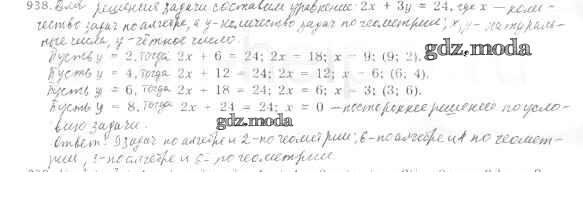 938. Для решения задачи составим уравнение: 2x + 3y = 24, где x – коли-
чество задач по алгебре, а y – количество задач по геометрии; x, y – натураль-
ные числа, y – чётное число.
Пусть y = 2, тогда 2x + 6 = 24; 2x = 18; x = 9; (9; 2).
gdz.moda
Пусть y = 4, тогда 2x + 12 = 24; 2x = 12; x = 6; (6; 4).
Пусть y = 6, тогда 2x + 18 = 24; 2x = 6; x = 3; (3; 6).
Пусть y = 8, тогда 2x + 24 = 24; x = 0 – постороннее решение по усло-
вию задачи.
gdz.moda
Ответ: 9 задач по алгебре и 2 – по геометрии; 6 – по алгебре и 4 по геомет-
рии, 3 – по алгебре и 6 – по геометрии.